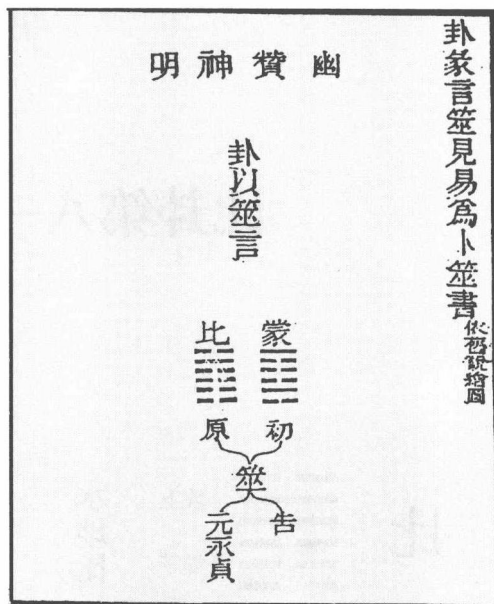 卦彖言筮見易爲卜筮書
依說繪圖
幽贊神明
卦以筮言
蒙 比
初 原
筮
告
元永貞